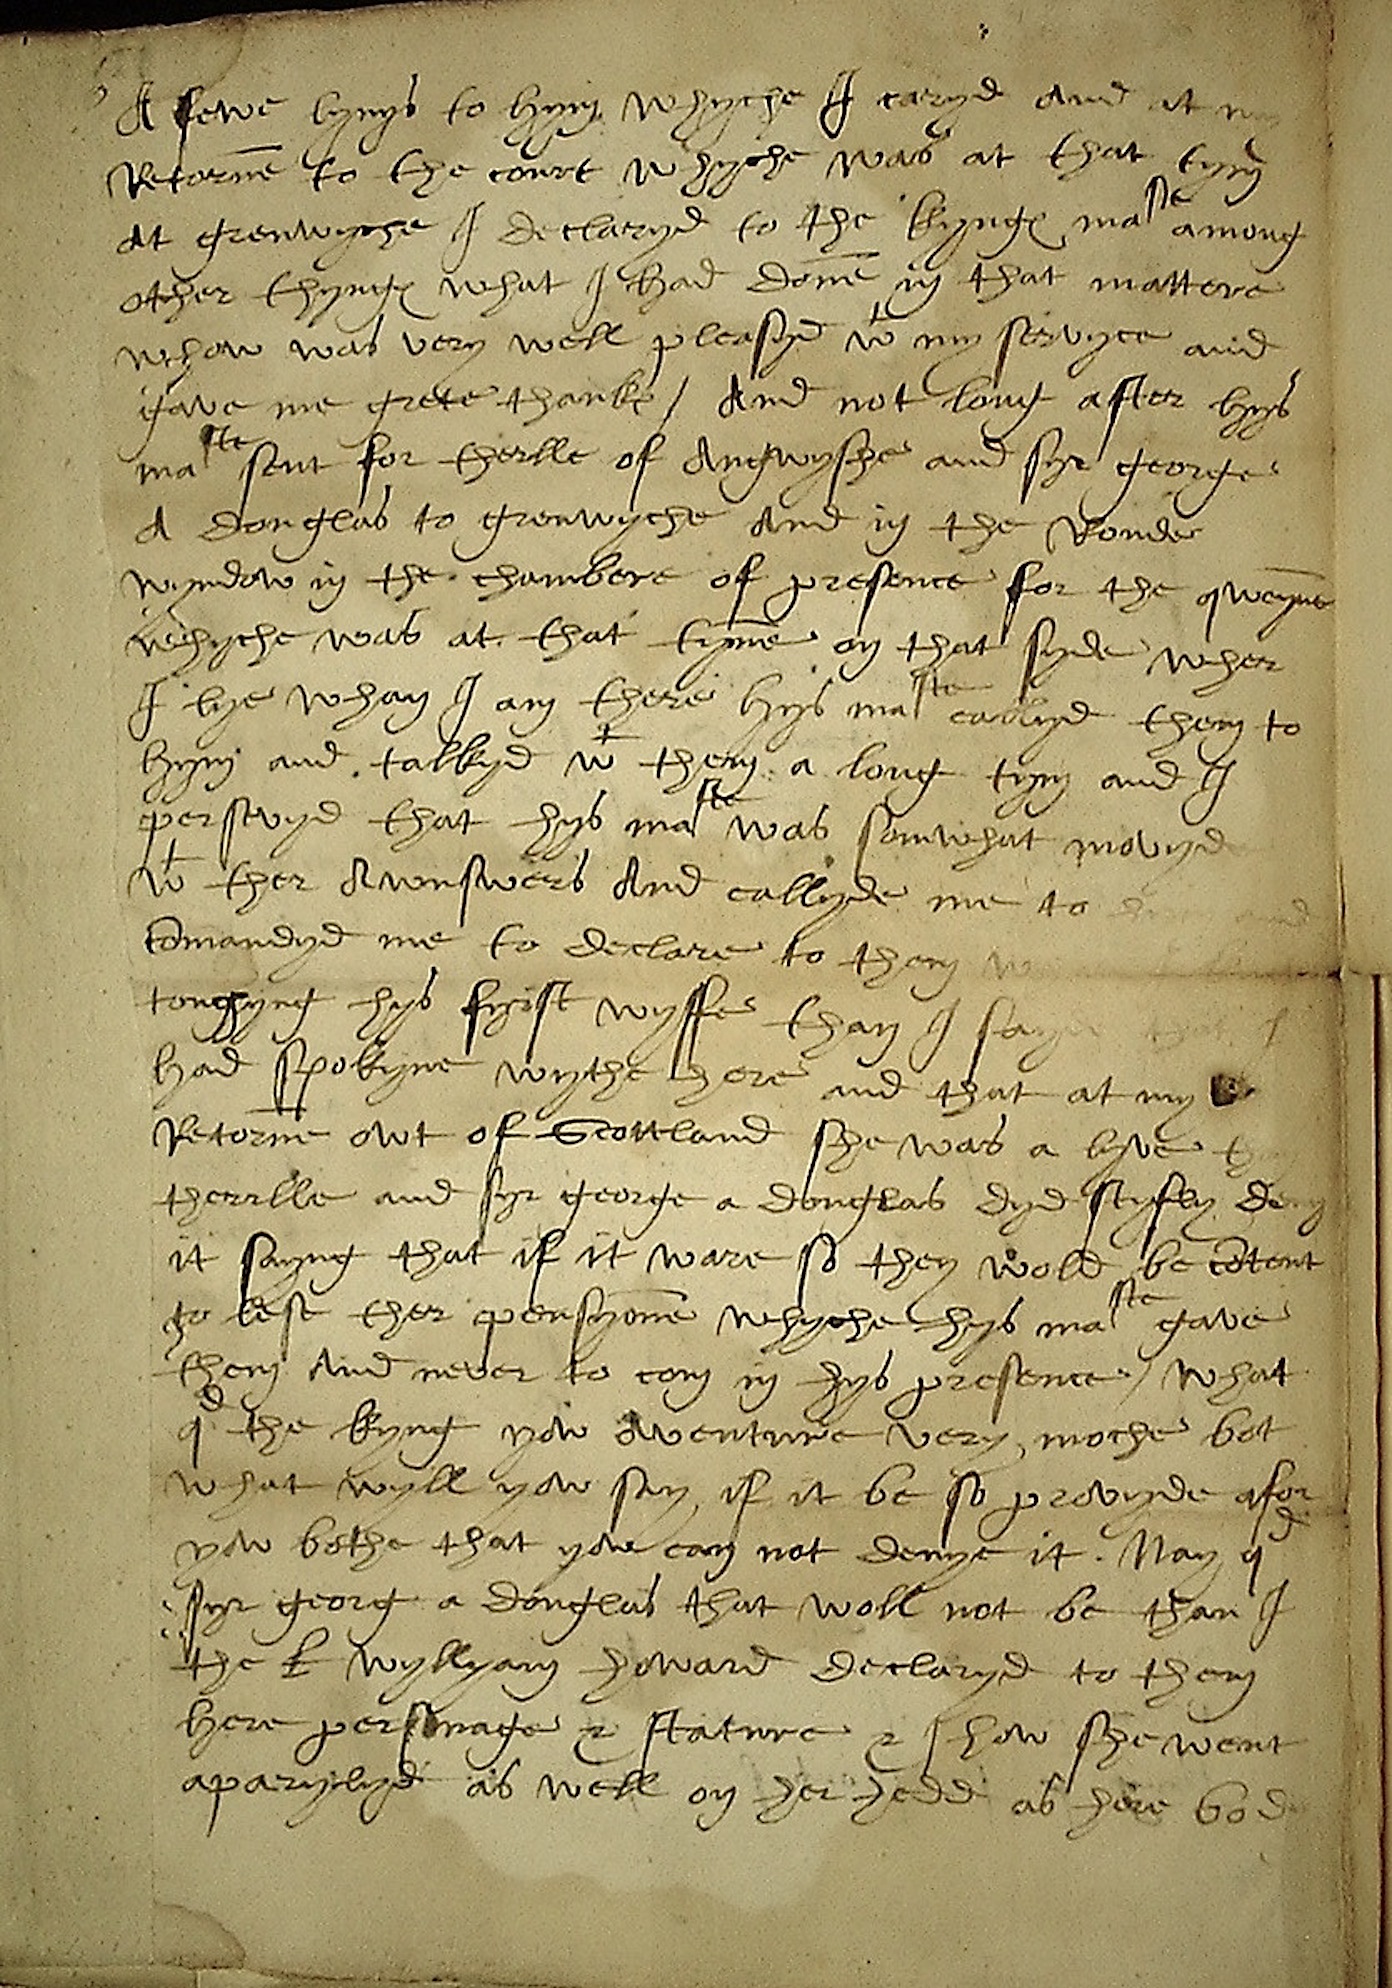 A fewe lynys to hym whyche I caryd And at my
Retorne to the court whyche was at that tym
At grenwyche I declaryd to the kyngs maste among
other thyngs what I had done in that mattere
whow was very well pleasyd wt my servyce and
gave me grete thanks / And not long after hys
maste sent for therlle of Angwyshe and syr george
A douglas to grenwyche And in the Rounde
wyndow in the chambere of presence for the qweyne
whyche was at that tyme on that syde wher
I lye whan I am there hys maste callyd them to
hym and talkyd wt them a long tym and I
persevyd that hys maste was somwhat movyd
wt ther Awnswers And callyde me to hym and
comandyd me to declare to them
towchyng hys fyrst wyffe than I sayd that I
had spokyne wythe here and that at my
Retorne owt of Scottland she was a lyve
therrlle and syr george a douglas dyd styfly deny
it sayng that if it ware so they wold be content
to lese ther pensyone whyche hys maste gave
them And never to com in hys presence / what
qd the kyng yow aventure very moche bot
what wyll yow say if it be so provyde afor
yow bothe that yow can not denye it . Nay qd
syr georg a douglas that woll not be than I
the L wyllyam howard declaryd to them
here personage & stature & how she went
aparylyd as well on her hedd as here bod